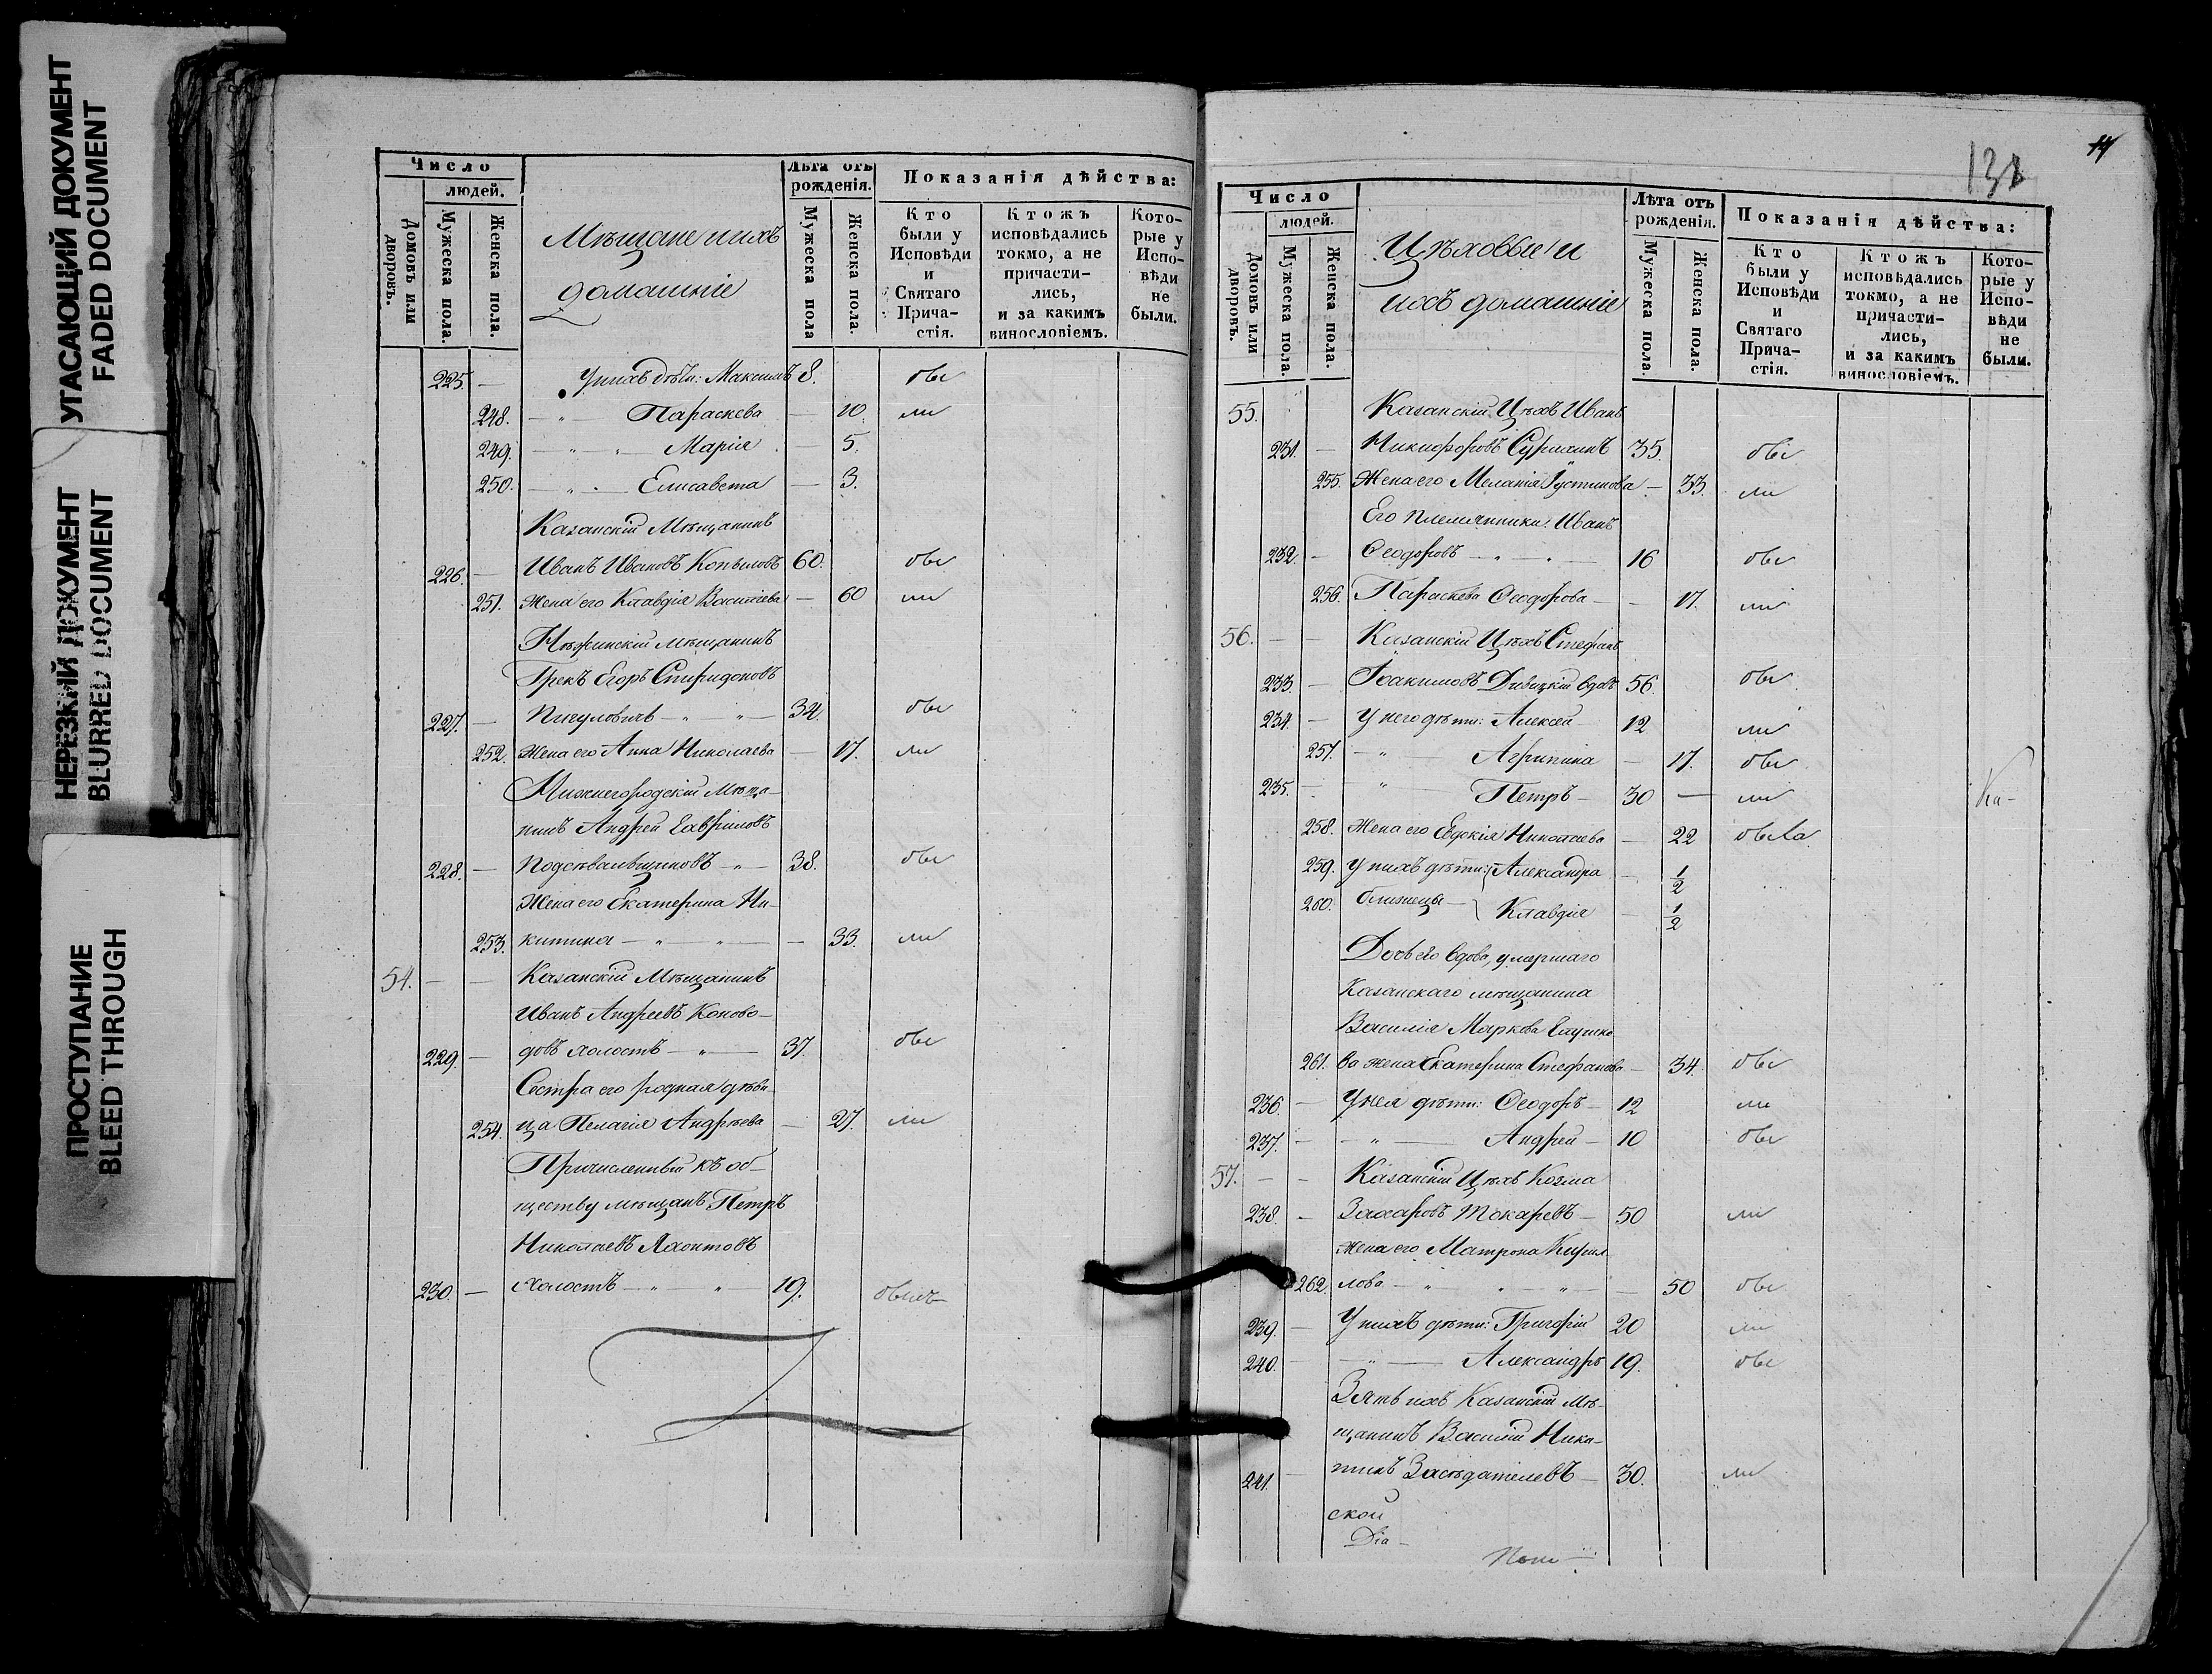 УГАСАЮЩИЙ ДОКУМЕНТ
FADED DOCUMENT
НЕРЕЗКИЙ ДОКУМЕНТ
BLURRED DOCUMENT
ПРОСТУПАНИЕ
BLEED THROUGH
Число
людей.
Домовъ или дворовъ.
Мужеска пола.
Женска пола.
Мѣщане и ихъ
домашніе
Лѣта отъ рожденія.
Мужеска пола
Женска пола.
Показанія дѣйства:
Кто были у Исповѣди и Святаго Прича-стія.
Ктожъ исповѣдались токмо, а не причасти-лись, и за какимъ винословіемъ.
Кото-рые у Испо-вѣди не были.
225. — У нихъ дѣти: Максимъ 8. бы
248. — " Параскева — 10. ли
249. — " Марія — 5.
250. — " — Елисавета — 3.
Казанскій Мѣщанинъ
226. — Иванъ Ивановъ Копыловъ 60. бы
251. Жена его Клавдія Васильева — 60 ли
Нѣжинскій мѣщанинъ
Грекъ Егоръ Спиридоновъ
227. — — " — " — 34. бы
252. Жена его Анна Николаева — 17. ли
Нижегородскій Мѣща-
нинъ Андрей Гавриловъ
228. — — " — 38. бы
Жена его Екатерина Ни-
253. китина — " — " — — 33. ли
54. — — Казанскій Мѣщанинъ
Иванъ Андреевъ Коново-
229. — довъ холостъ — " — 37. бы
Сестра его родная дѣви-
254. ца Пелагія Андреева — 27. ли
Причисленный къ об-
ществу мѣщанъ Петръ
Николаевъ Яхонтовъ
230. — Холостъ — " — " — 19. былъ
131
14
Число
людей.
Домовъ или дворовъ.
Мужеска пола.
Женска пола.
Цѣховые и
ихъ домашніе
Лѣта отъ рожденія.
Мужеска пола.
Женска пола.
Показанія дѣйства:
Кто были у Исповѣди и Святаго Прича-стія.
Ктожъ исповѣдались токмо, а не причасти-лись, и за какимъ винословіемъ.
Кото-рые у Испо-вѣди не были.
55. Казанскій Цѣхъ Иванъ
231. — Никифоровъ 35. бы
255. Жена его Меланія Іустинова — 33. ли
Его племянники: Иванъ
232. — Ѳеодоровъ — " — 16 бы
256. Параскева Ѳеодорова — — 17. ли
56. — — Казанскій Цѣхъ Стефанъ
233. — Іоакимовъ Дивицкій вдовъ 56. бы
234. — У него дѣти: Алексѣй 12 ли
257. — " — Агрипина — 17. бы
235. — " Петръ — 30 — ли
258. Жена его Евдокія Николаева — 22 была
259. У нихъ дѣти: Александра — 1/2
260. близнецы — Клавдія — 1/2
вдова, умершаго
Казанскаго мѣщанина
Василія Маркова Глушко
261. ва жена Екатерина Стефанова — 34. бы
236. — У нея дѣти: Ѳеодоръ — 12 ли
237. — — " — Андрей — 10 бы
57. — — Казанскій Цѣхъ Козма
238. — Захаровъ Токаревъ — 50 ли
Жена его Матрона Кирил
262. лова — " — " — 50 бы
239. — У нихъ дѣти: Григорій 20 ли
240. — — " — Александръ 19. бы
Зять ихъ Казанскій Мѣ-
щанинъ Василій Ника-
241. — Засѣдателевъ — 30. ли
ской
Діа-